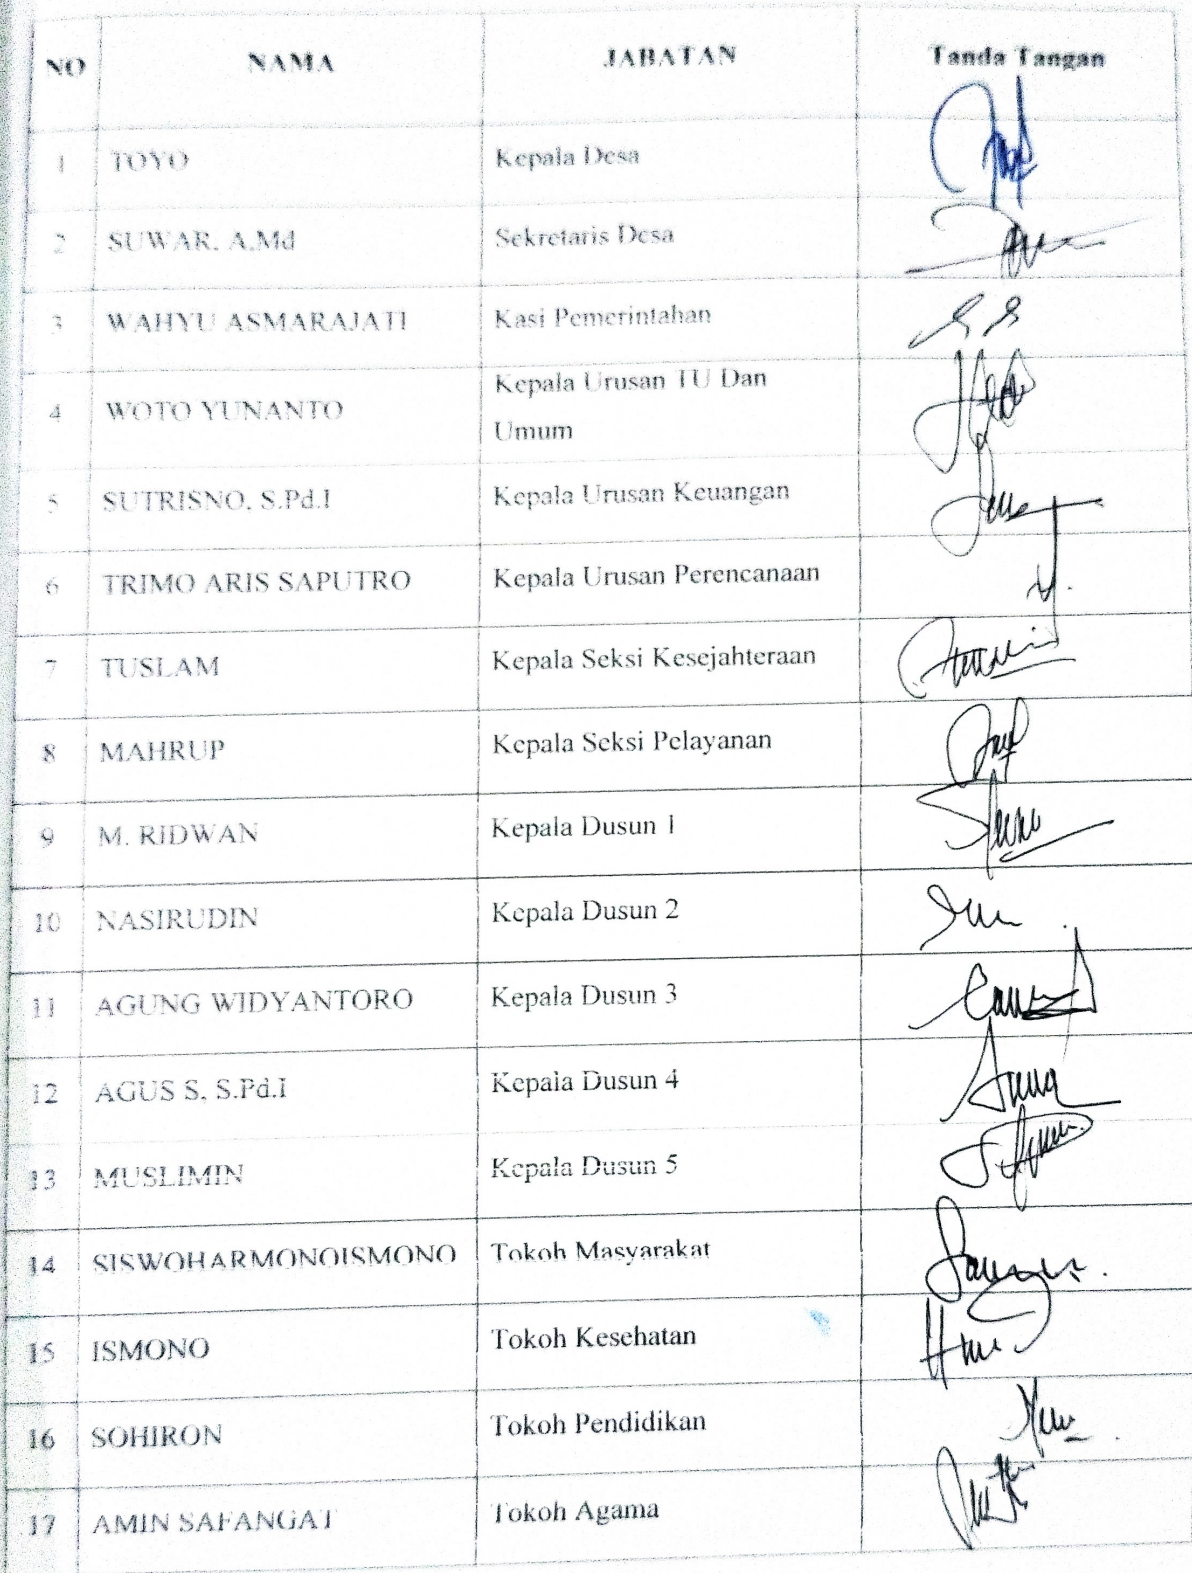 NO NAMA JABATAN Tanda Tangan
1 TOYO Kepala Desa
2 SUWAR. A.Md Sekretaris Desa
3 WAHYU ASMARAJATI Kasi Pemerintahan
4 WOTO YUNANTO Kepala Urusan TU Dan
Umum
5 SUTRISNO. S.Pd.I Kepala Urusan Keuangan
6 TRIMO ARIS SAPUTRO Kepala Urusan Perencanaan
7 TUSLAM Kepala Seksi Kesejahteraan
8 MAHRUP Kepala Seksi Pelayanan
9 M. RIDWAN Kepala Dusun 1
10 NASIRUDIN Kepala Dusun 2
11 AGUNG WIDYANTORO Kepala Dusun 3
12 AGUS S. S.Pd.I Kepala Dusun 4
13 MUSLIMIN Kepala Dusun 5
14 SISWOHARMONOISMONO Tokoh Masyarakat
15 ISMONO Tokoh Kesehatan
16 SOHIRON Tokoh Pendidikan
17 AMIN SAFANGAT Tokoh Agama